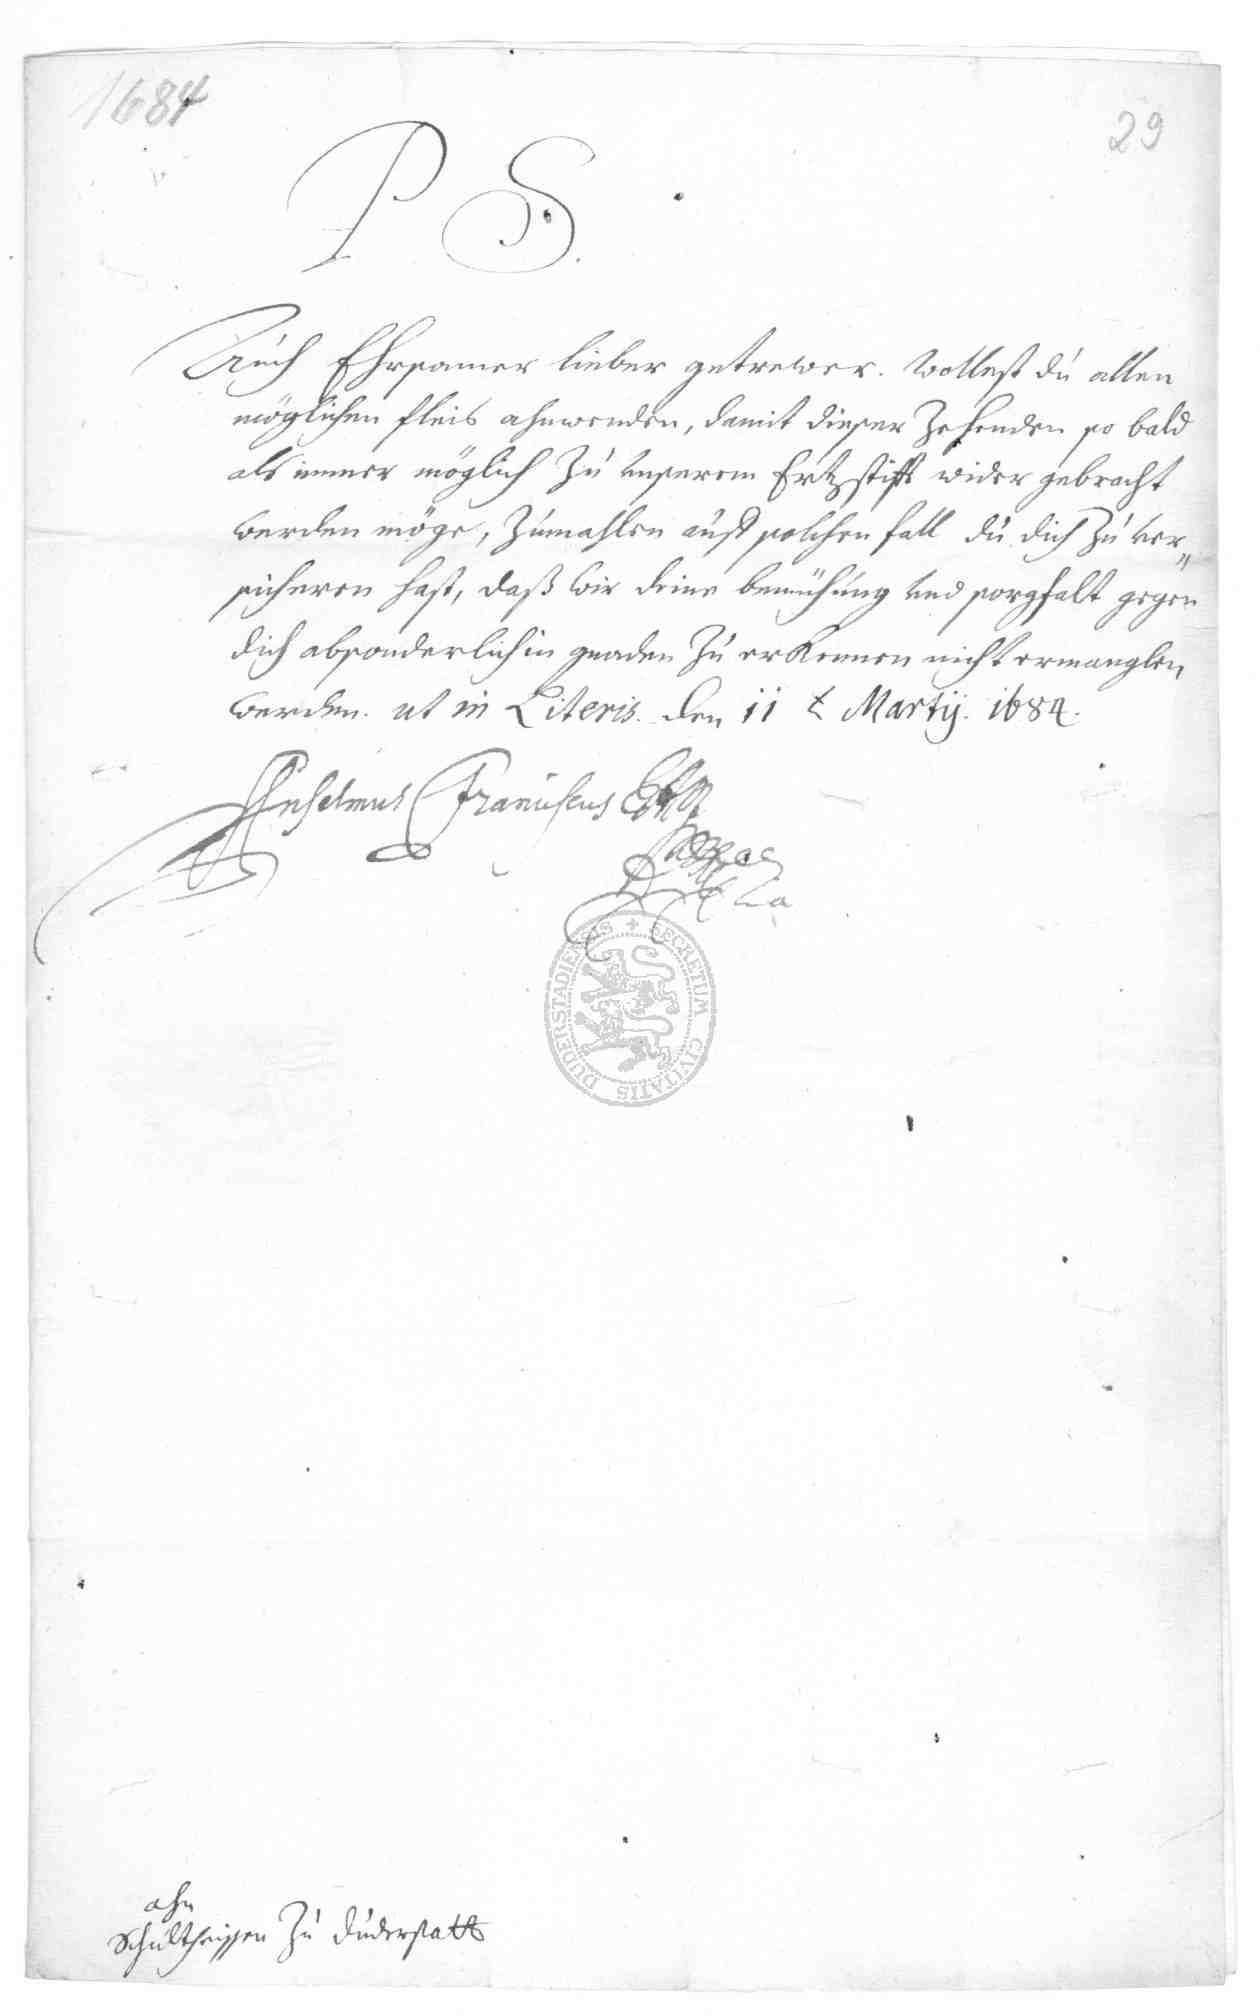 1684
29
P S.
Auch Ehrsamer lieber getrewer. Wollest du allen
möglichen fleis ahnwenden, damit dieser Zehenden so bald
als immer möglich zu unserem Ertzstifft wider gebracht
werden möge, zumahlen auff solchen fall du dich zu ver„
sicheren hast, daß wir deine bemühung und sorgfalt gegen
dich absonderlich in gnaden zu erkennen nicht ermanglen
werden. ut in Literis. den 11 t Martij. 1684.
Anselmus Franciscus
SECRETUM CIVITATIS DUDERSTADIENSIS
ahn
Schultheissen zu Duderstatt